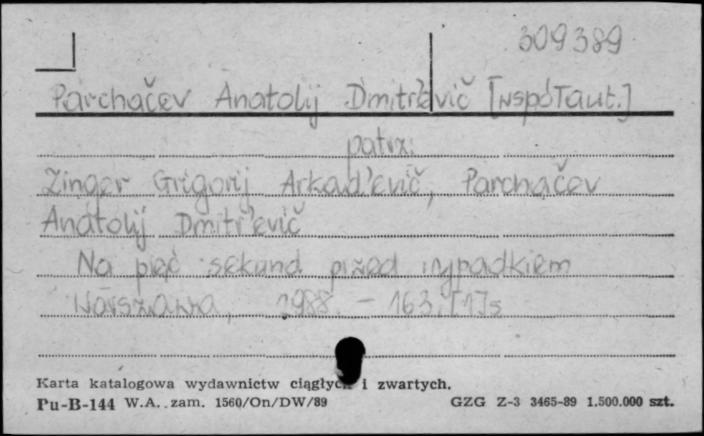 309389
Parchačev Anatolij Dmitr'evič [współaut.]
patrz:
Zinger Grigorij Arkad'evič, Parchačev
Anatolij Dmitr'evič
Na pięć sekund przed wypadkiem
Warszawa, 1988. - 163, [1]s
Karta katalogowa wydawnictw ciągłych i zwartych.
Pu-B-144 W.A. zam. 1560/On/DW/89 GZG Z-3 3465-89 1.500.000 szt.